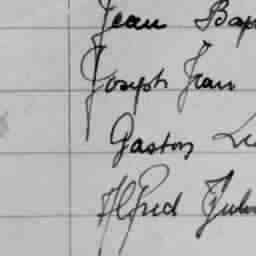 Jean Bap
Joseph Jean
Gaston
Alfred Jul